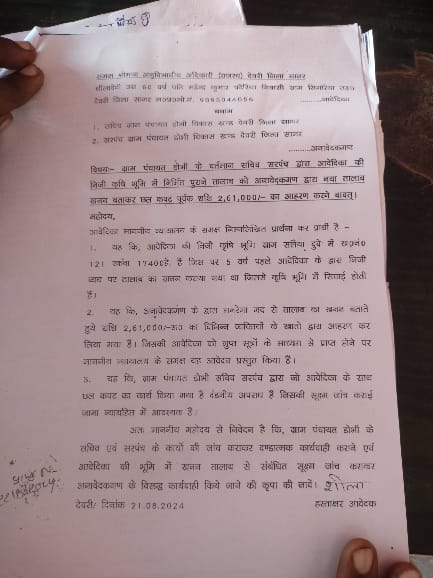 समक्ष श्रीमान अनुविभागीय अधिकारी (राजस्व) देवरी जिला सागर
उम्र 60 वर्ष पति महेन्द्र कुमार निवासी ग्राम सिमरिया
देवरी जिला सागर ..........आवेदिका
बनाम
1. सचिव ग्राम पंचायत डोभी विकास खण्ड देवरी जिला सागर
2. सरपंच ग्राम पंचायत डोभी विकास खण्ड देवरी जिला सागर
..........अनावेदकगण
विषयः- ग्राम पंचायत डोभी के वर्तमान सचिव सरपंच द्वारा आवेदिका की
निजी कृषि भूमि में निर्मित पुराने तालाब को अनावेदकगण द्वारा नया तालाब
खनन बताकर छल कपट पूर्वक राशि 2,61,000/- का आहरण करने बावत्।
महोदय,
आवेदिका माननीय न्यायालय के समक्ष निम्नलिखित प्रार्थना कर प्रार्थी है -
1. यह कि, आवेदिका की निजी कृषि भूमि ग्राम डुबे में ख०नं०
121 रकवा है, जिस पर 5 वर्ष पहले आवेदिका के द्वारा निजी
व्यय पर तालाब का खनन कराया गया था जिससे कृषि भूमि में सिंचाई होती
है।
2. यह कि, अनावेदकगण के द्वारा मनरेगा मद से तालाब का खनन बताते
हुये राशि 2,61,000/-रु० का विभिन्न व्यक्तियों के खातों द्वारा आहरण कर
लिया गया है। जिसकी आवेदिका को गुप्त सूत्रों के माध्यम से प्राप्त होने पर
माननीय न्यायालय के समक्ष यह आवेदन प्रस्तुत किया है।
3. यह कि, ग्राम पंचायत डोभी सचिव सरपंच द्वारा जो आवेदिका के साथ
छल कपट का कार्य किया गया है दंडनीय अपराध है जिसकी सूक्ष्म जांच कराई
जाना न्यायहित में आवश्यक है।
अतः माननीय महोदय से निवेदन है कि, ग्राम पंचायत डोभी के
सचिव एवं सरपंच के कार्यों की जांच कराकर दण्डात्मक कार्यवाही कराने एवं
आवेदिका की भूमि में खनन तालाब से संबंधित सूक्ष्म जांच कराकर
अनावेदकगण के विरूद्ध कार्यवाही किये जाने की कृपा की जावें।
देवरी/ दिनांक 21.08.2024 हस्ताक्षर आवेदक